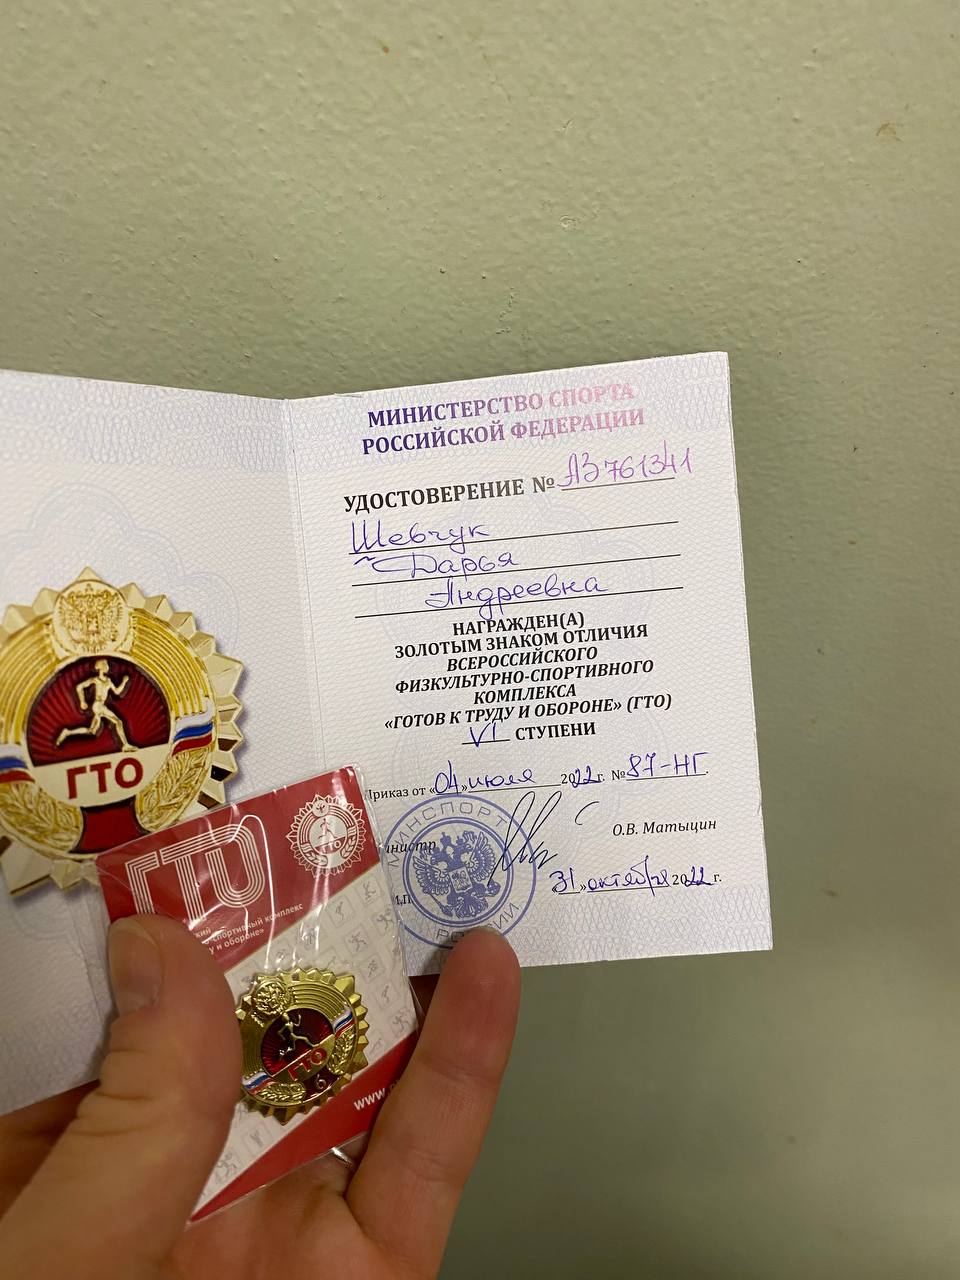 МИНИСТЕРСТВО СПОРТА
РОССИЙСКОЙ ФЕДЕРАЦИИ
УДОСТОВЕРЕНИЕ № АЗ 761341
Шевчук
Дарья
Андреевна
НАГРАЖДЕН(А)
ЗОЛОТЫМ ЗНАКОМ ОТЛИЧИЯ
ВСЕРОССИЙСКОГО
ФИЗКУЛЬТУРНО-СПОРТИВНОГО
КОМПЛЕКСА
«ГОТОВ К ТРУДУ И ОБОРОНЕ» (ГТО)
VI СТУПЕНИ
Приказ от «04» июля 2022 г. № 87-НГ.
инистр
О.В. Матыцин
М.П
31 » октября 2022 г.
МИНСПОРТ
РО ИИ
ГТО
ГТО
ГТО
кий
о-спортивный комплекс
у и обороне»
ГТО
6
www.